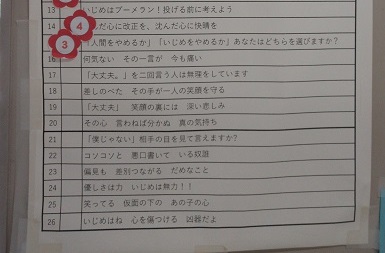 13 いじめはブーメラン！投げる前に考えよう
14 んだ心に改正を、沈んだ心に快晴を
4
3
「人間をやめるか」「いじめをやめるか」あなたはどちらを選びますか？
16 何気ない その一言が 今も痛い
17 「大丈夫。」を二回言う人は無理をしています
18 差しのべた その手が一人の笑顔を守る
19 「大丈夫」 笑顔の裏には 深い悲しみ
20 その心 言わねば分かぬ 真の気持ち
21 「僕じゃない」相手の目を見て言えますか？
22 コソコソと 悪口書いて いる奴誰
23 偏見も 差別つながる だめなこと
24 優しさは力 いじめは無力！！
25 笑ってる 仮面の下の あの子の心
26 いじめはね 心を傷つける 凶器だよ